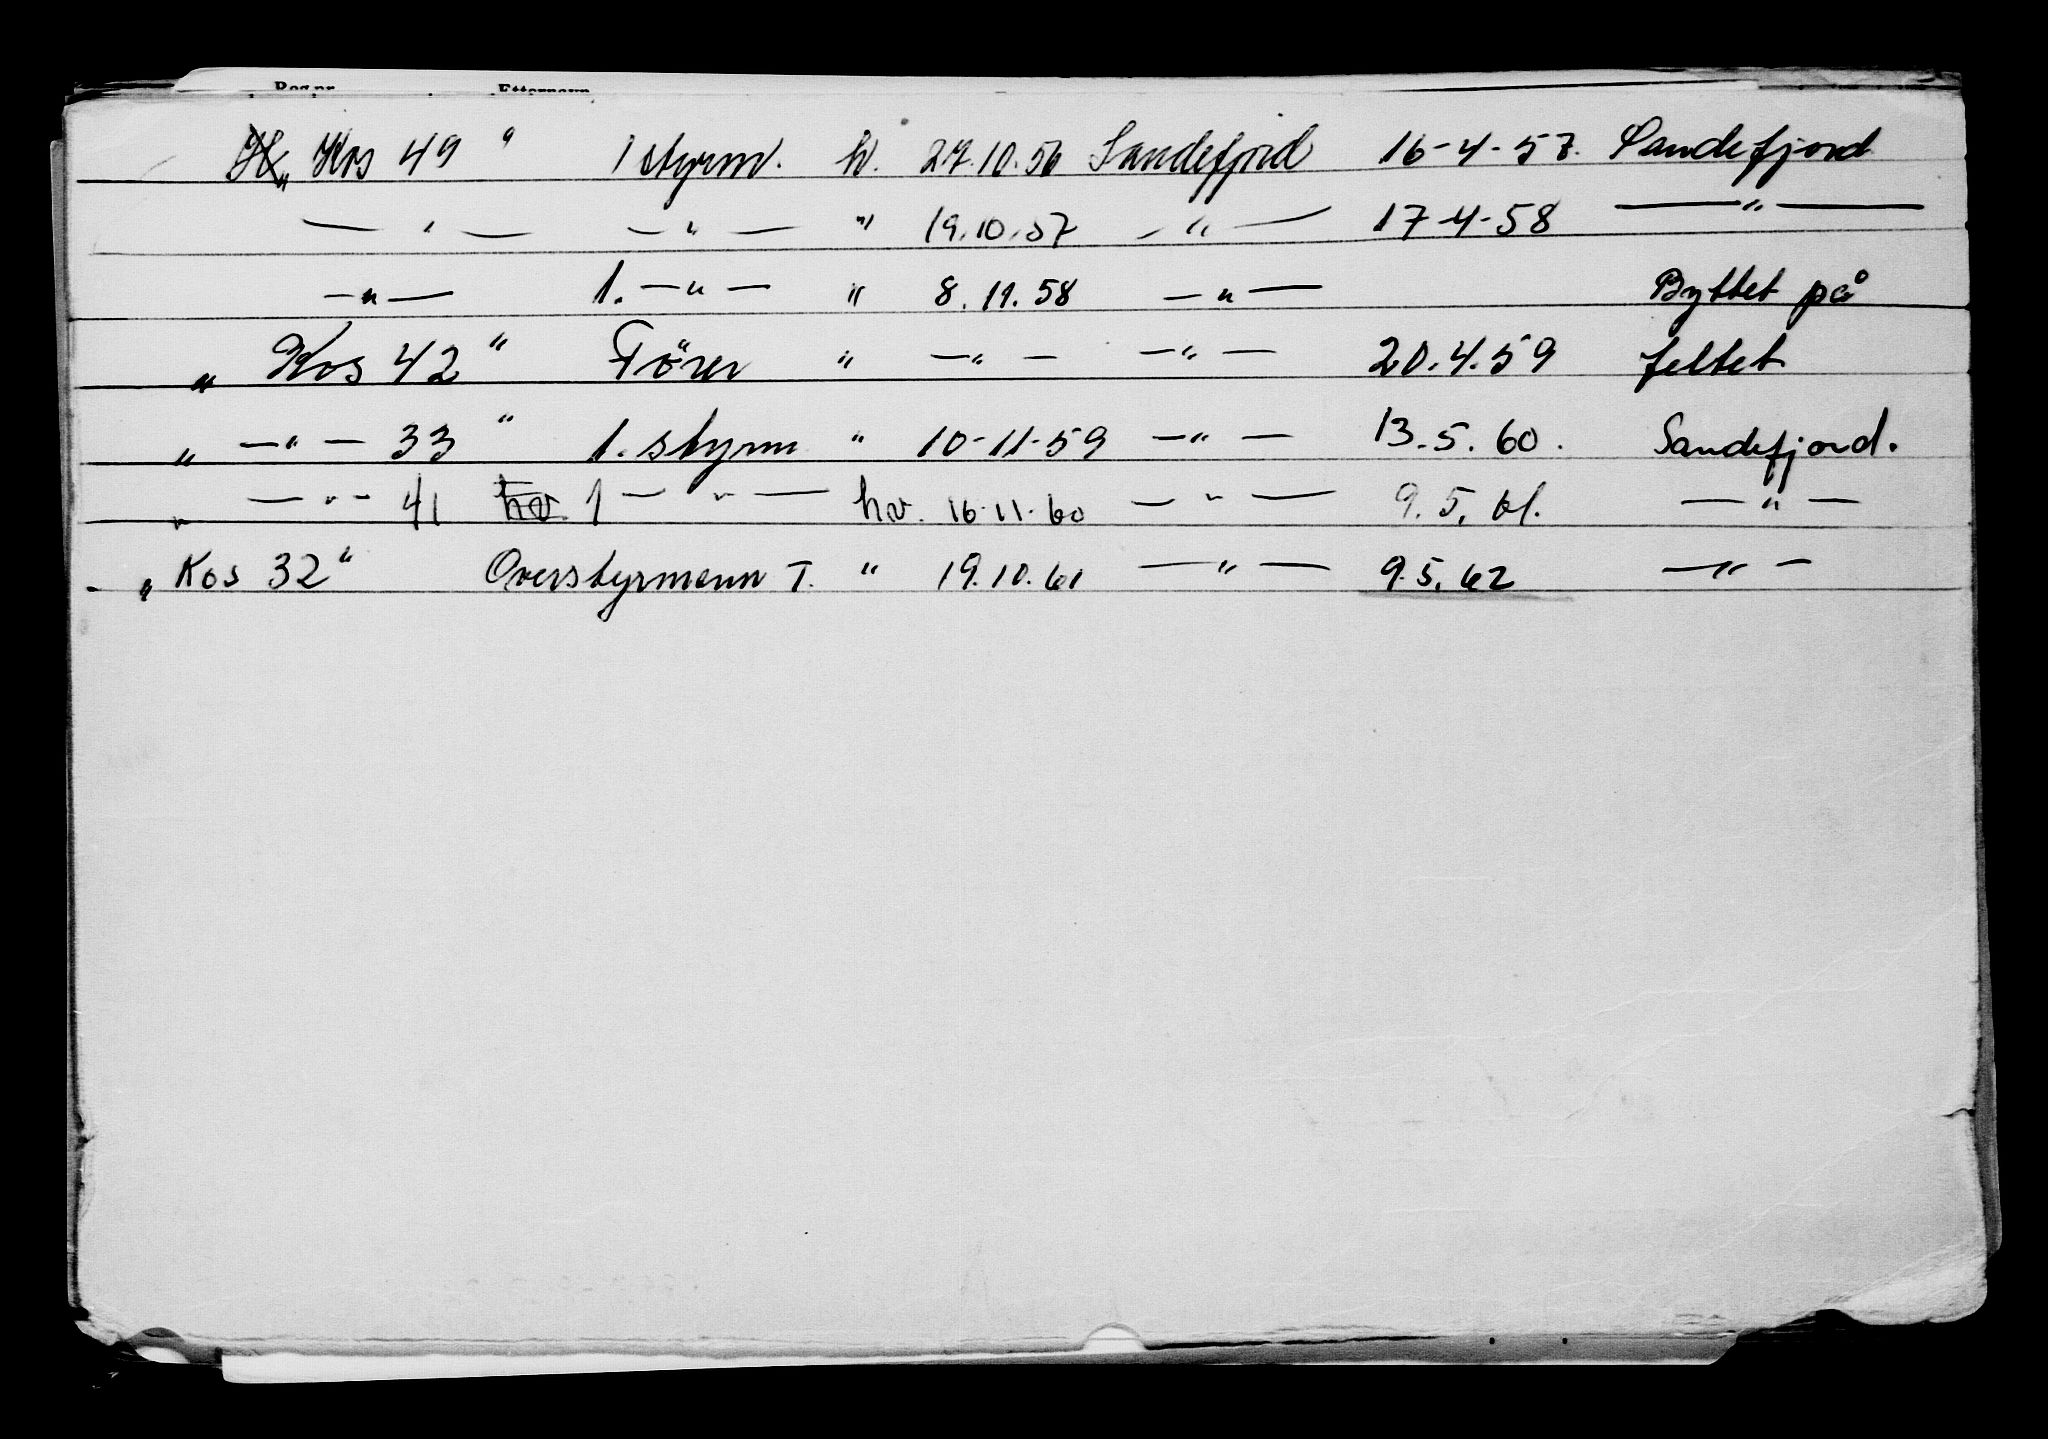 „ Kos 49 " 1 styrm. h. 27.10.56 Sandefjord 16-4-57. Sandefjord
— " — — " — " 19.10.57 — " — 17-4-58 — " —
— " — 1. — " — " 8.11.58 — " — Byttet på
„ Kos 42 " Förer " — " — — " — 20.4.59 feltet
„ — " — 33 " 1. styrm " 10-11-59 — " — 13.5.60. Sandefjord.
„ — " — 41 hv 1 — " — hv. 16.11.60 — " — 9.5.61. — " —
„ Kos 32 " Overstyrmann I. " 19.10.61 — " — 9.5.62 — " —